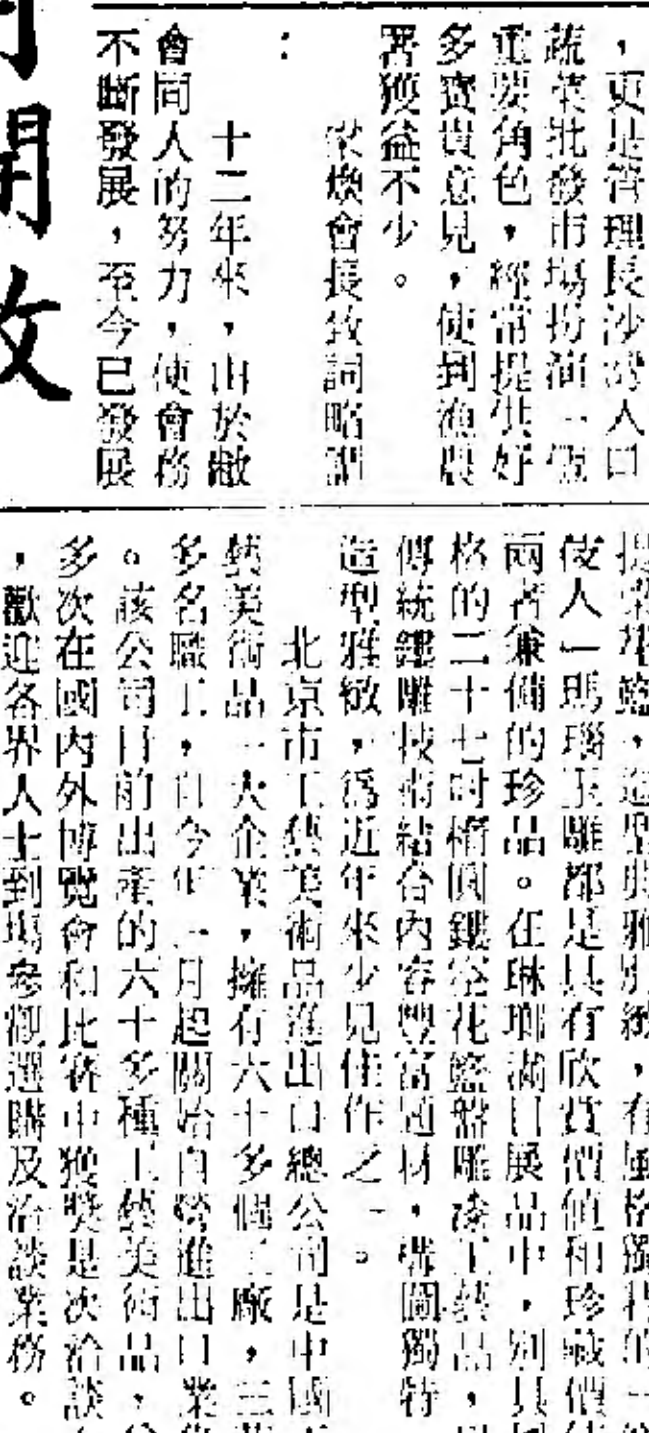 ，更是管理長沙灣入口
蔬菜批發市場扮演一個
重要角色，經常提供好
多寶貴意見，使到漁農
署獲益不少。
煥會長致詞略謂
：
十二年來，由於敝
會同人的努力，使會務
不斷發展，至今已發展
開放
提梁花籃，造型典雅別緻，有風格獨特的一
伎人」瑪瑙玉雕都是具有欣賞價值和珍藏價值
兩者兼備的珍品。在琳瑯滿目展品中，別具
格的二十七吋橢圓鏤空花籃盤雕漆工藝品，
傳統鏤雕技術結合內容豐富題材，構圖獨特
造型雅緻，為近年來少見佳作之一。
北京市工藝美術品進出口總公司是中國
藝美術品一大企業，擁有六十多個工廠，三萬
多名職工，自今年一月起開始自營進出口業
。該公司目前出產的六十多種工藝美術品，
多次在國內外博覽會和比賽中獲獎是次洽談
，歡迎各界人士到場參觀選購及洽談業務。